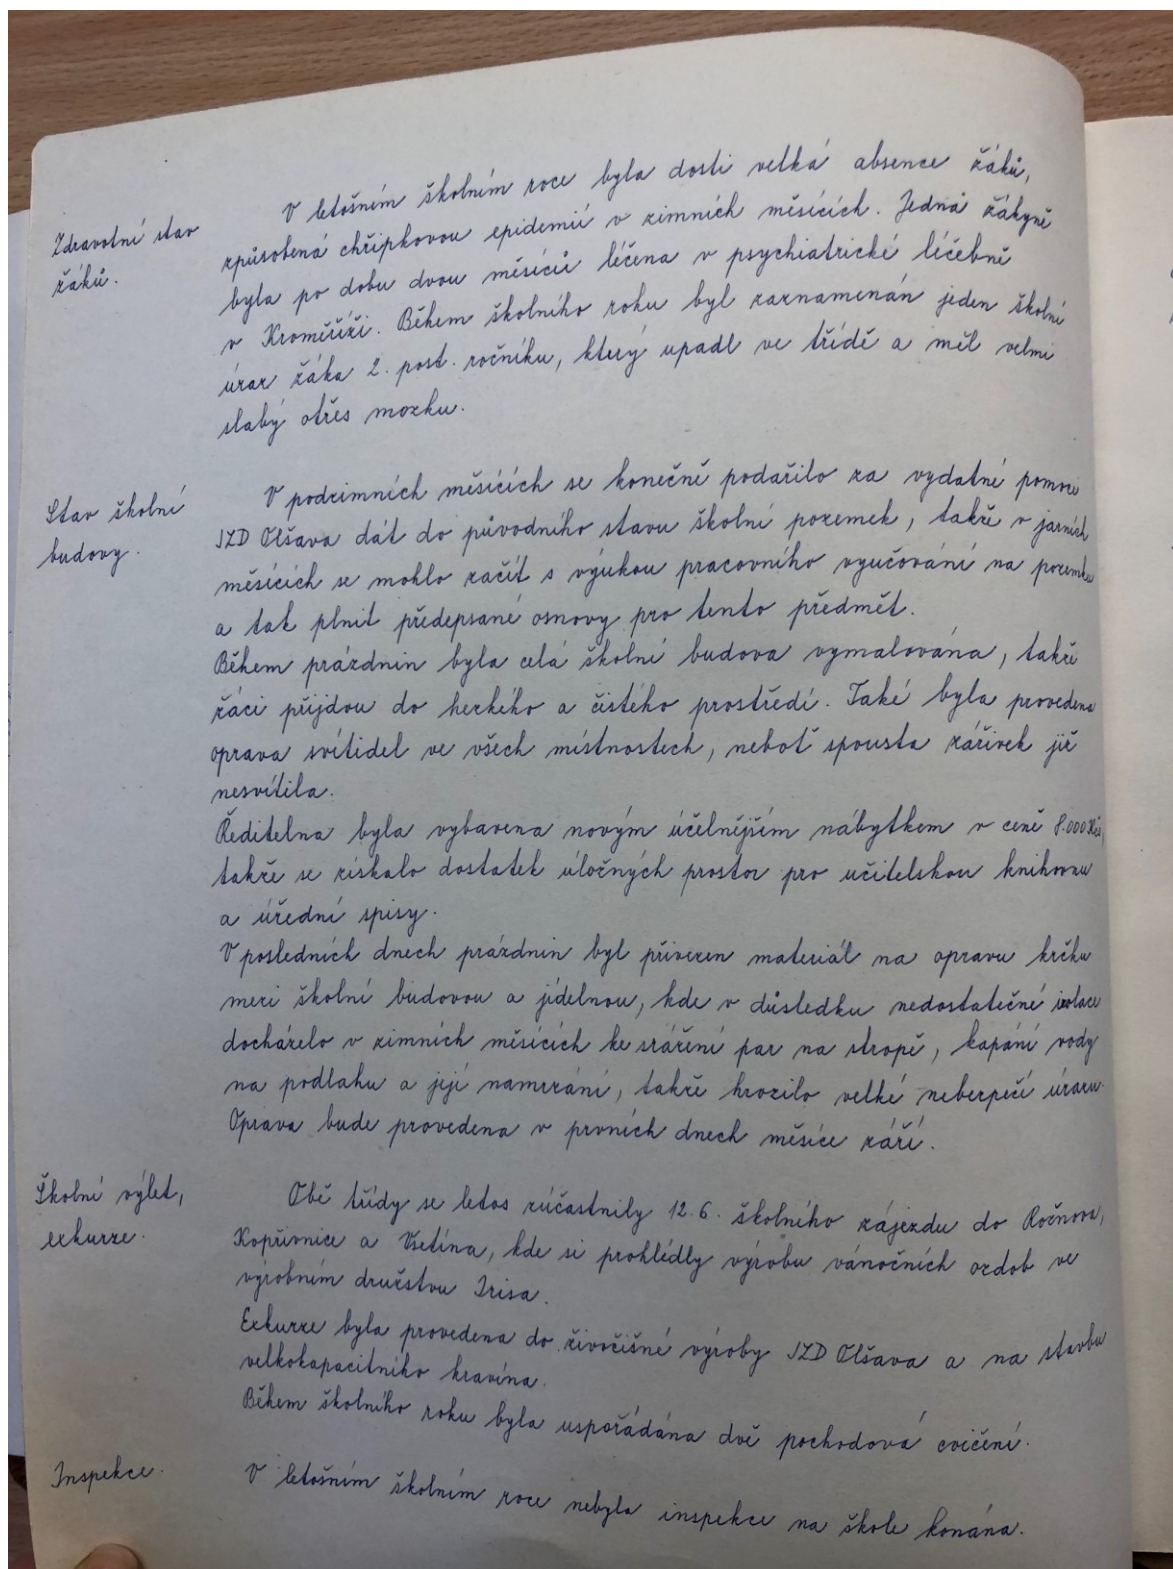 Zdravotní stav
žáků.
V letošním školním roce byla dosti velká absence žáků,
způsobená chřipkovou epidemií v zimních měsících. Jedná žákyně
byla po dobu dvou měsíců léčena v psychiatrické léčebně
v Kroměříži. Během školního roku byl zaznamenán jeden školní
úraz žáka 2. post. ročníku, který upadl ve třídě a měl velmi
slabý otřes mozku.
Stav školní
budovy.
V podzimních měsících se konečně podařilo za vydatné pomoci
JZD Olšava dát do původního stavu školní pozemek, takže v jarních
měsících se mohlo začít s výukou pracovního vyučování na pozemku
a tak plnit předepsané osnovy pro tento předmět.
Během prázdnin byla celá školní budova vymalována, takže
žáci přijdou do hezkého a čistého prostředí. Také byla provedena
oprava svítidel ve všech místnostech, neboť spousta zářivek již
nesvítila.
Ředitelna byla vybavena novým účelnějším nábytkem v ceně 8.000 Kčs,
takže se získalo dostatek úložných prostor pro učitelskou knihovnu
a úřední spisy.
V posledních dnech prázdnin byl přivezen materiál na opravu krčku
mezi školní budovou a jídelnou, kde v důsledku nedostatečné izolace
docházelo v zimních měsících ke srážení par na stropě, kapání vody
na podlahu a její namrzání, takže hrozilo velké nebezpečí úrazu.
Oprava bude provedena v prvních dnech měsíce září.
Školní výlet,
exkurze.
Obě třídy se letos zúčastnily 12.6. školního zájezdu do Rožnova,
Kopřivnice a Vsetína, kde si prohlédly výrobu vánočních ozdob ve
výrobním družstvu Irisa.
Exkurze byla provedena do živočišné výroby JZD Olšava a na stavbu
velkokapacitního kravína.
Během školního roku byla uspořádána dvě pochodová cvičení.
Inspekce.
V letošním školním roce nebyla inspekce na škole konána.